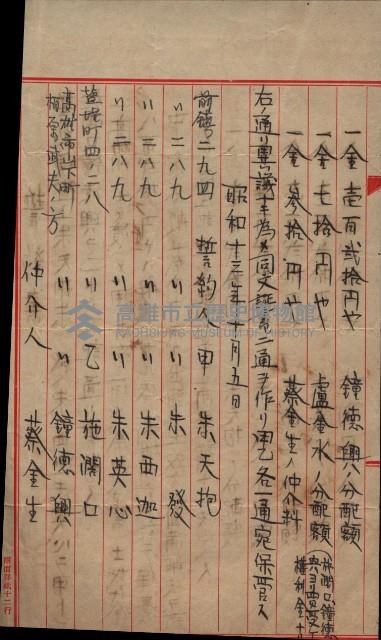 一金壹百貳拾円也 鐘德興ハ分配額
一金七拾円也 盧金水ノ分配額
一金參拾円也 蔡金生ノ仲介料
右ノ通リ異議ナキ為メ同文証書二通ヲ作リ甲乙各一通宛保管ス
昭和十三年 月五日
前鎮二九四 誓約人 甲 朱天抱
〃 二八九 〃 〃 朱發
〃 二八九 〃 〃 朱西迦
〃 二八九 〃 〃 朱英心
塩埕町四ノ二八 〃 乙 施闊口
高雄市山下町
方 〃 〃 鐘德興
仲介人 蔡金生
高雄市立歷史博物館
KAOHSIUNG MUSEUM OF HISTORY